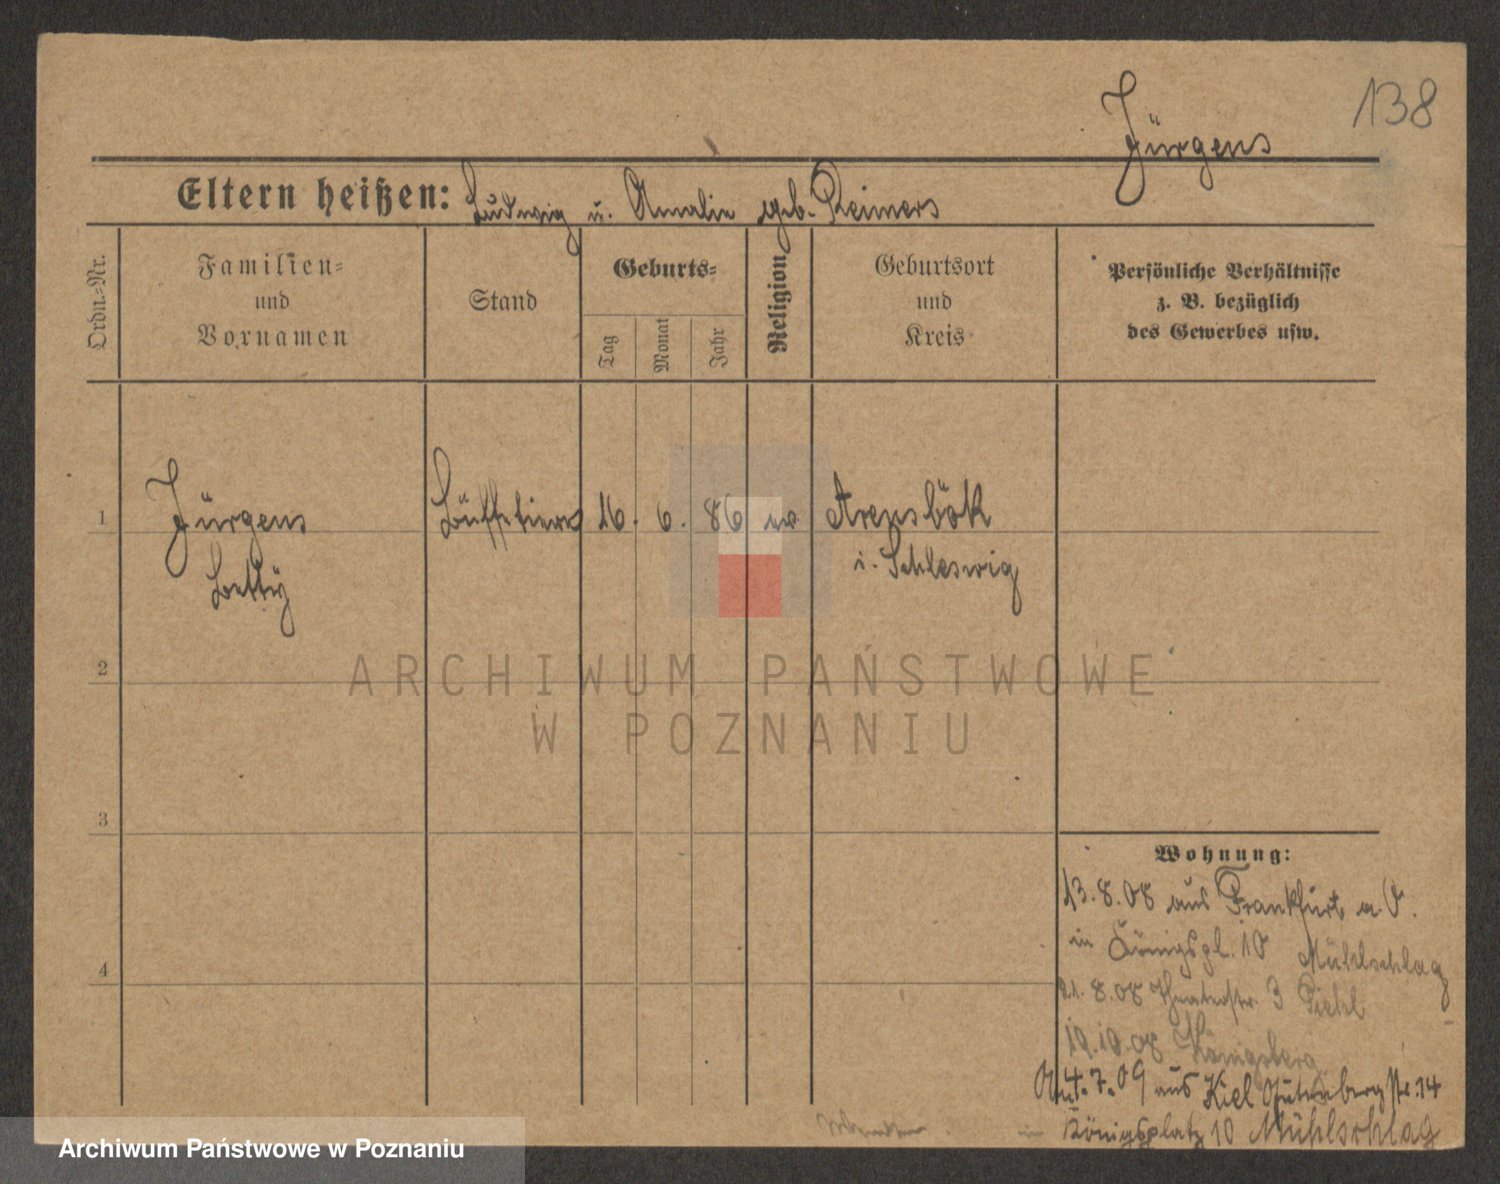 138
Jürgens
Eltern heißen: Ludwig u. Amalie geb. Reimers
Ordn.-Nr.
Familien-
und
Vornamen
Stand
Geburts-
Tag
Monat
Jahr
Religion
Geburtsort
und
Kreis
Persönliche Verhältnisse
z. B. bezüglich
des Gewerbes usw.
1
Jürgens
Betty
Büffetiere
16. 6. 86
ev
Arensbök
i. Schleswig
2
3
4
ARCHIWUM PAŃSTWOWE
W POZNANIU
Wohnung:
13.8.08 aus Frankfurt a. O.
in Königspl. 10 Mühlschlag
21.8.08 Theaterstr. 3 Piehl
10.10.08 Königsberg
4.7.09 aus Kiel Gutenbergstr. 14
in Königsplatz 10 Mühlschlag
Archiwum Państwowe w Poznaniu